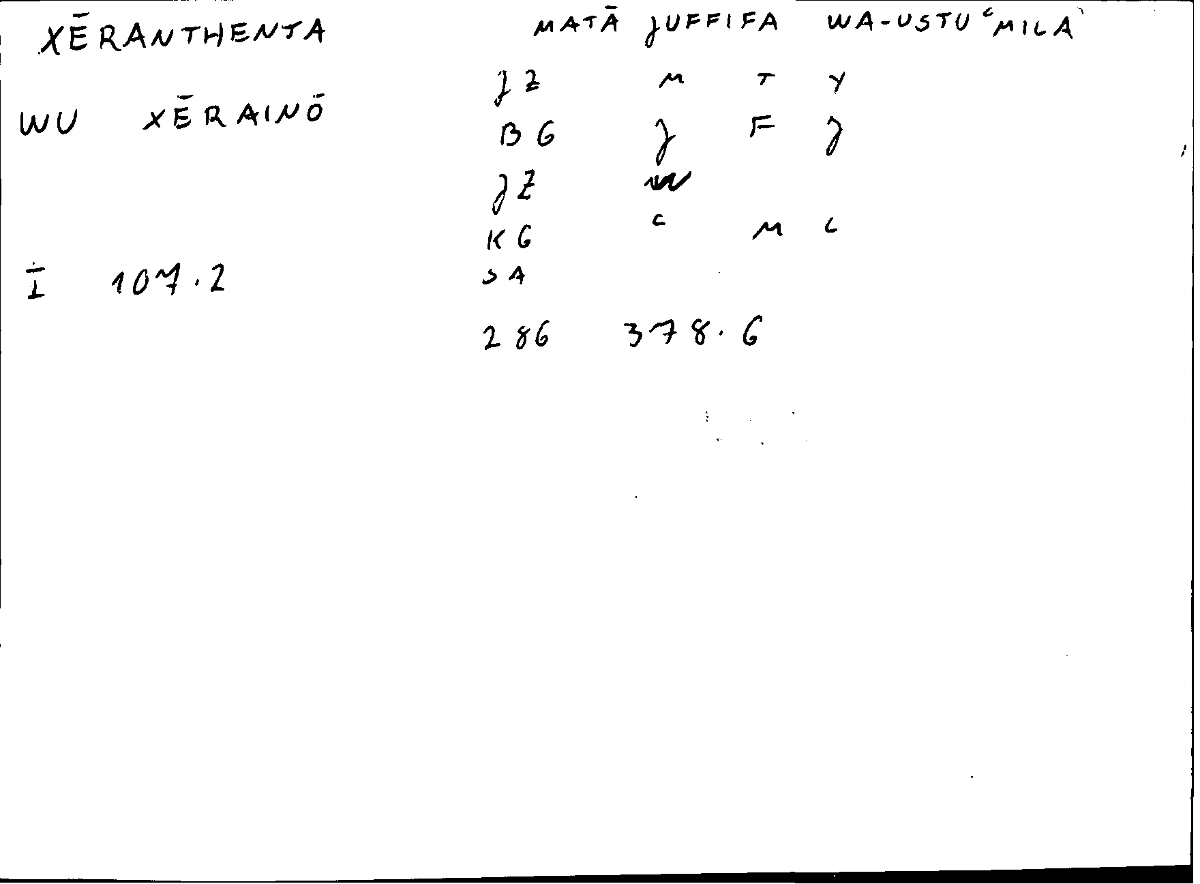 XĒRANTHENTA MATĀ JUFFIFA WA-USTUʿMILA
JZ M T Y
WU XĒRAINŌ BG J F J
JZ W
KG ʿ M L
Ī 107.2 SA
286 378.6